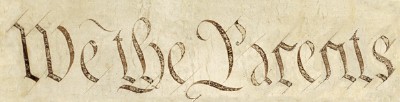 We the Parents